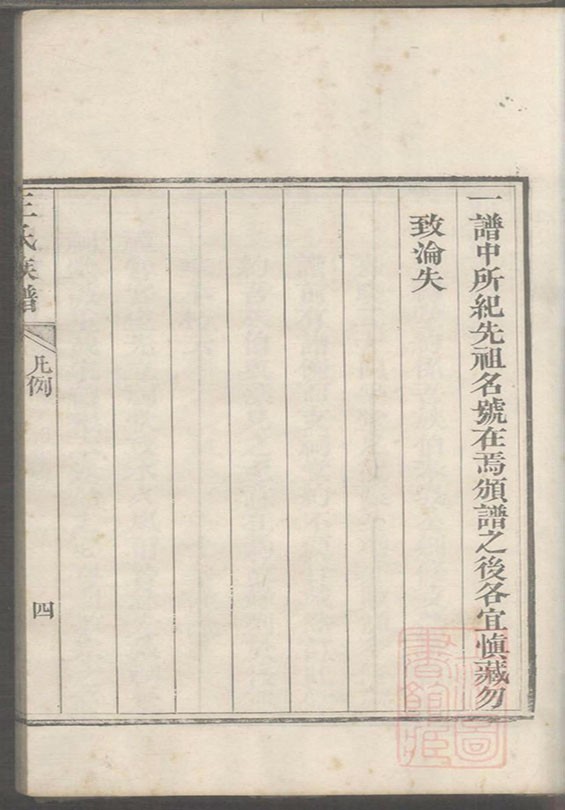 一譜中所紀先祖名號在焉頒譜之後各宜慎藏勿
致淪失
王氏族譜
凡例
四